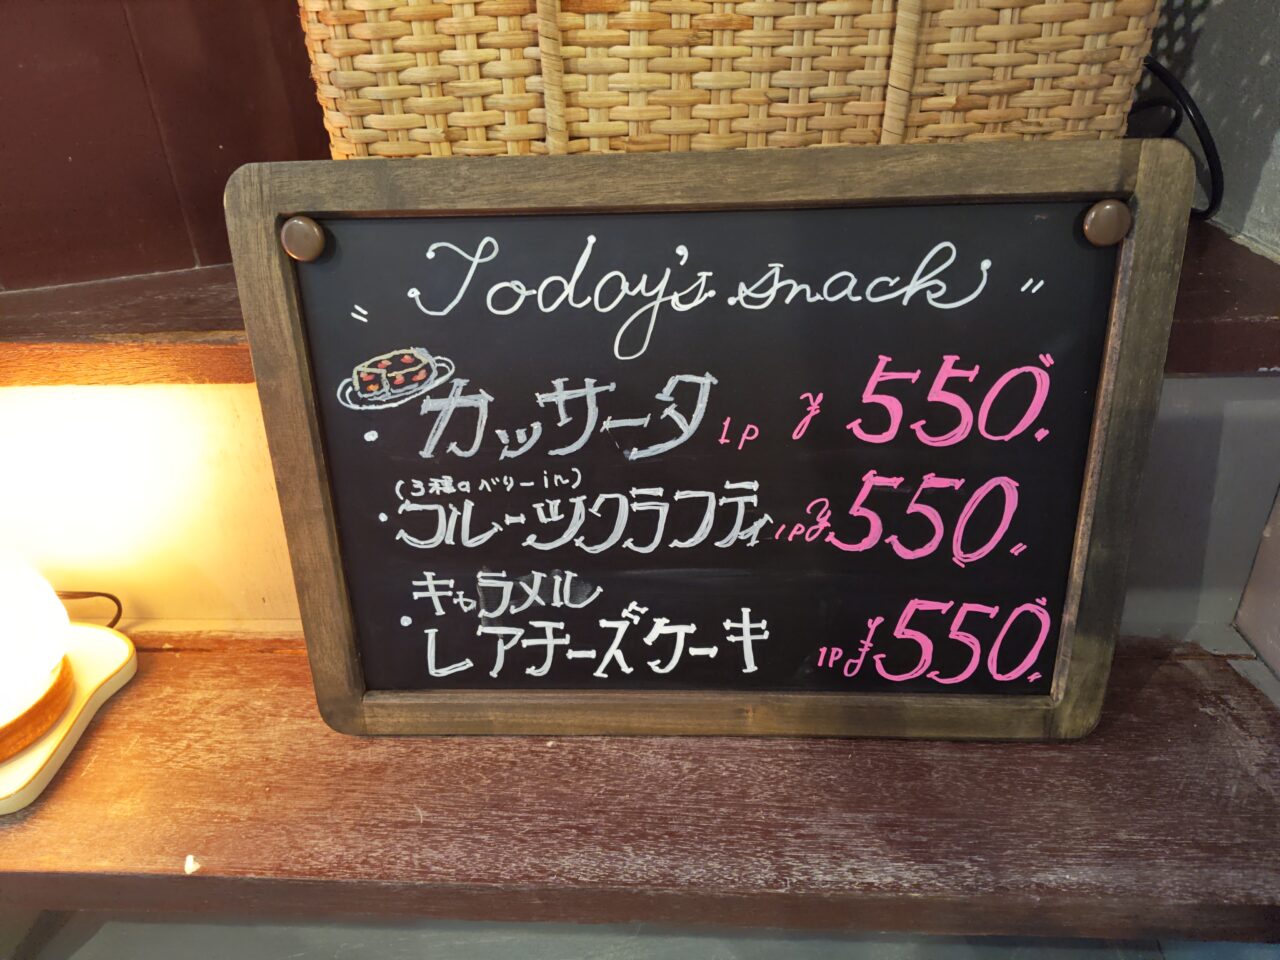 〃 Today's snack 〃
・カッサータ 1P ¥550.
(3種のベリーin)
・フルーツクラフティ 1P ¥550.
キャラメル
・レアチーズケーキ 1P ¥550.